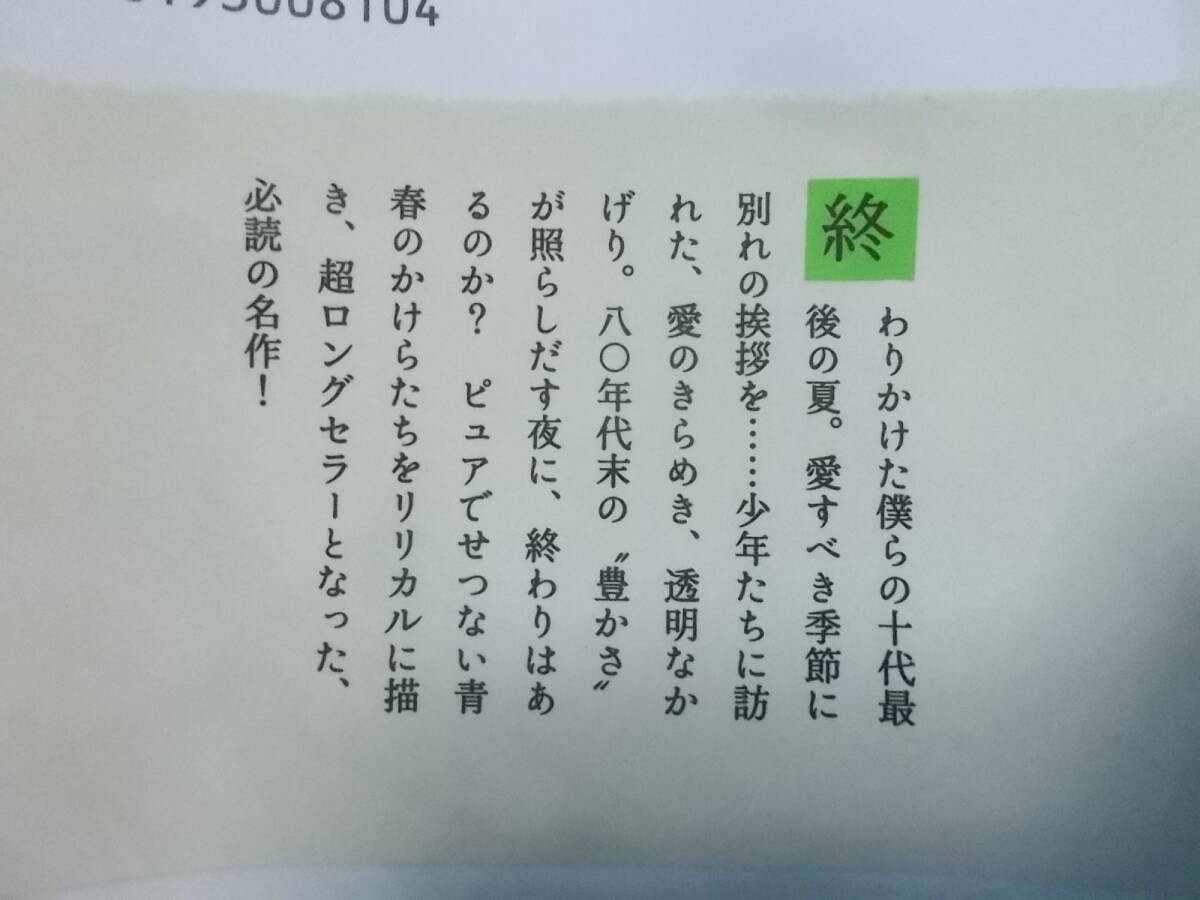 195008104
終わりかけた僕らの十代最
後の夏。愛すべき季節に
別れの挨拶を……少年たちに訪
れた、愛のきらめき、透明なか
げり。八〇年代末の〝豊かさ〟
が照らしだす夜に、終わりはあ
るのか？　ピュアでせつない青
春のかけらたちをリリカルに描
き、超ロングセラーとなった、
必読の名作！